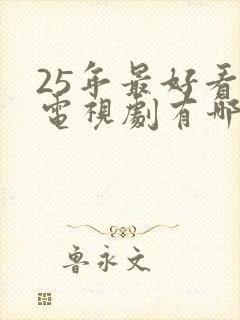 25年最好看
電視劇有哪
魯永文